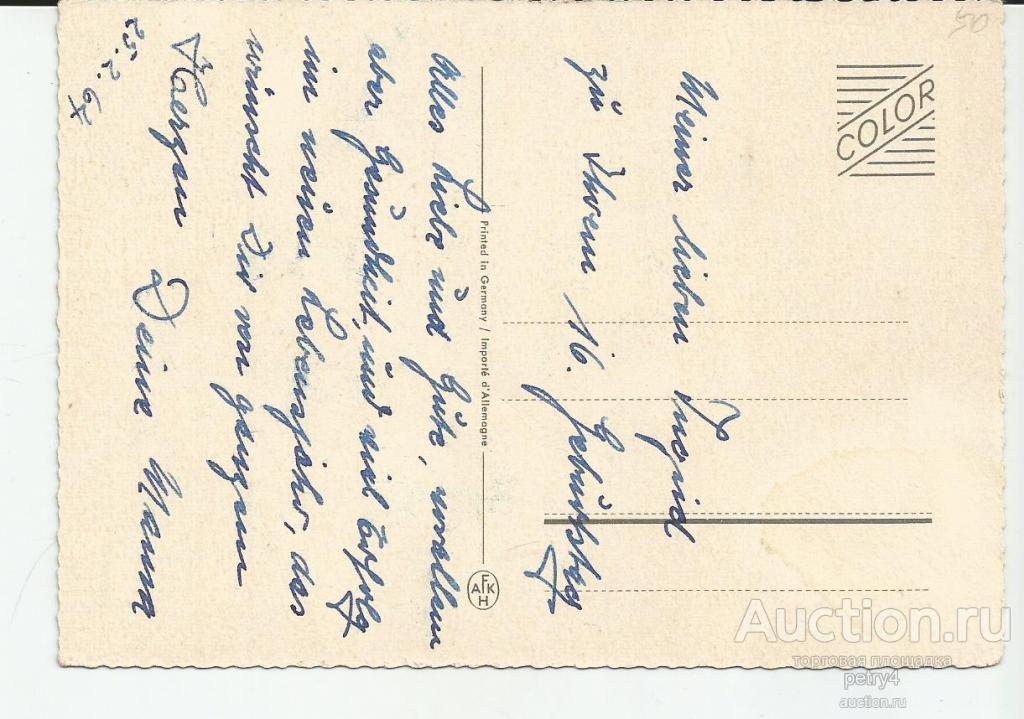 Meiner lieben Ingrid
zu Ihrem 16. Geburtstag
Alles Liebe und Gute, vor allem
aber Gesundheit, und viel Erfolg
im neuen Lebensjahr, das
wünscht Dir von ganzem
Herzen Deine Mama
25.2.67
COLOR
Printed in Germany / Importé d'Allemagne
AFKH
50
Auction.ru
торговая площадка
petry4
auction.ru